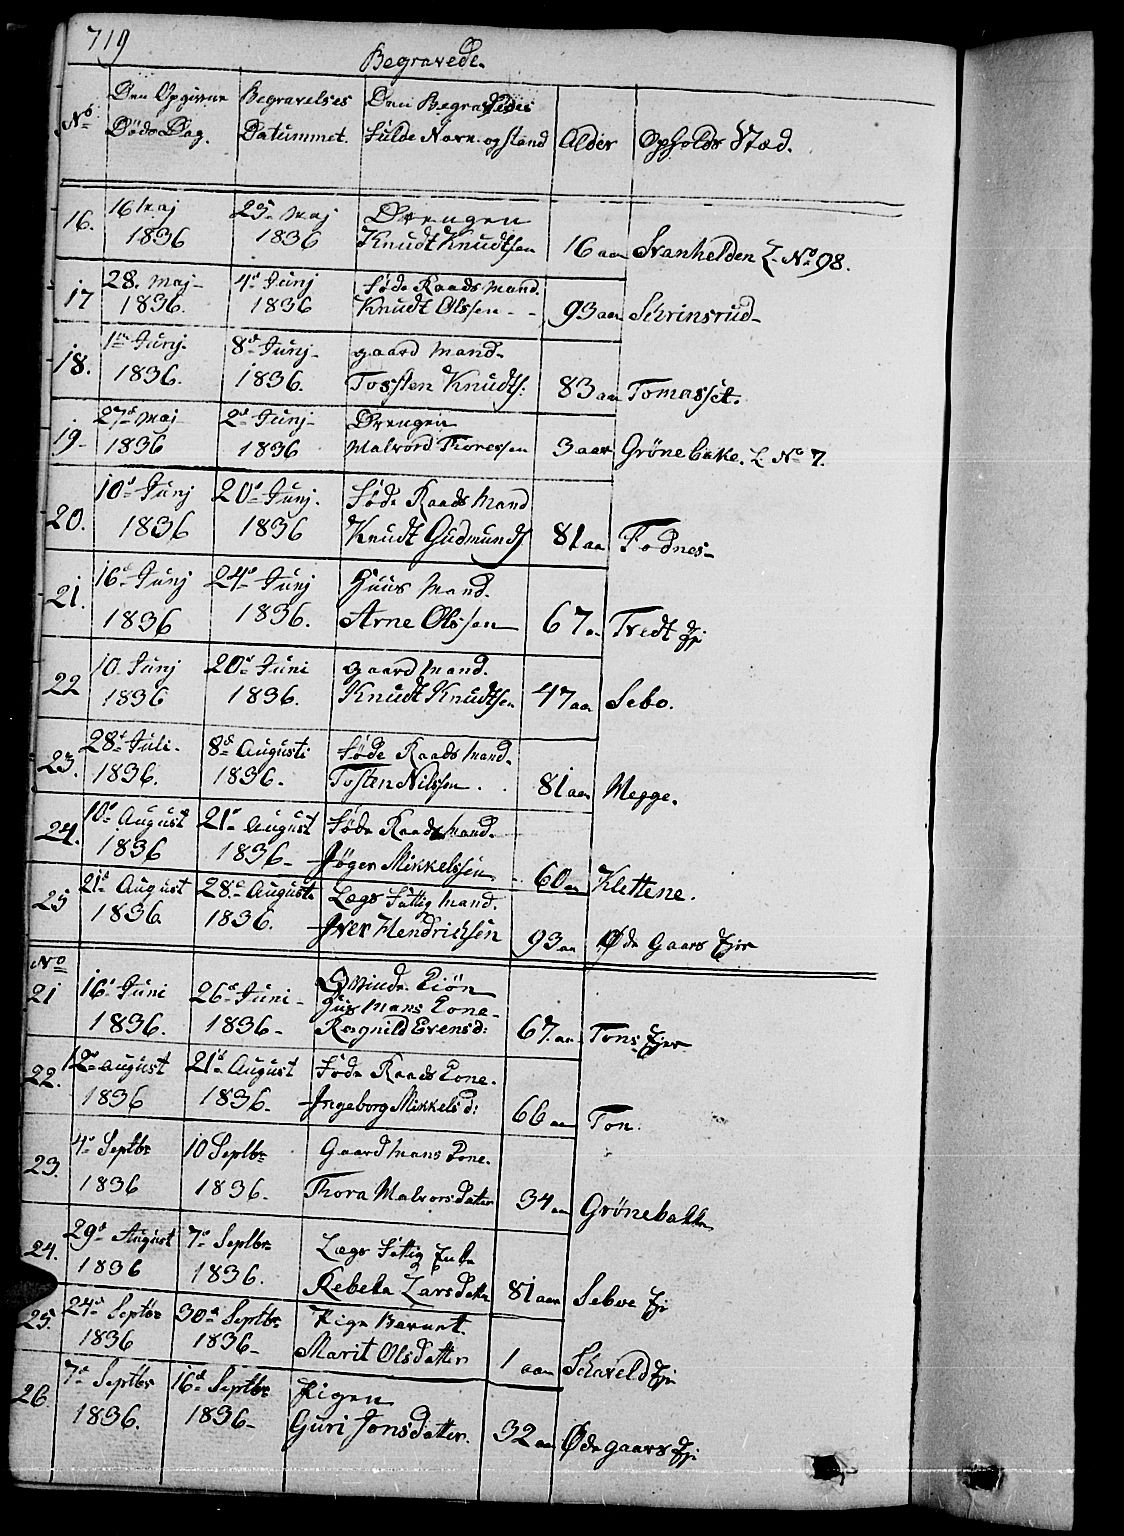 719
Begravede.
No
Den Opgivne Døds Dag.
Begravelses Datummet.
Den Begravedes fulde Navn og stand
Alder
Opholds Stæd.
16. 16 Maj 1836 25 Maj 1836 Drengen Knudt Knudtsen 16 aar Svanhelden L. No 98.
17 28. Maj 1836. 4d Junj 1836 Føde Raads Mand. Knudt Olssen 93 aar Schrinsrud
18. 1te Junj. 1836. 8d Junj 1836. gaard Mand. Tossten Knudts: 83 aar Tomasset.
19 27d Maj 1836 2d Junj 1836 Drengen Malvord Thoressen 3 aar Grönebake. L No 7.
20. 10d Junj 1836 20d Junj. 1836 Føde Raads Mand Knudt Gudmunds 81 aa Fodnes
21. 16d Junj 1836 24d Junj 1836. Huus Mand. Arne Olssen 67 a Tvedt Eji
22 10 Junj 1836 20d Juni 1836. gaard Mand. Knudt Knudtsen 47 aa Sebo.
23. 28d Juli. 1836. 8d Augusti 1836. Føde Raads Mand. Tosten Nilssen 81 aar Megge.
24. 10d August 1836 21d August 1836 Føde Raads Mand. Jøger Mikkelssen 60 aa Klettene.
25 21d August 1836 28d August. 1836. Lægs Fattig Mand. Iver Hendrichsen 93 aa Øde Gaars Ejer
No
21 16d Juni 1836. 26d Juni 1836 Qvinde Kiön Huusmans Kone Ragnild Evensd: 67. aa Tons Ejer
22. 12d August 1836 21d August 1836. Føde Raads Kone. Ingeborg Mikkelsd: 66 aa Ton.
23. 4d Septbr 1836 10 Septbr 1836. Gaard Mans Kone. Thora Malvorsdatter 34 aar Grönebakke
24. 29d August 1836 7d Septbr 1836. Lægs Fattig Enke Rebeka Larsdatter 81 aar Seboe Eji
25. 24d Septbr 1836 30d Septbr 1836 Pige Barnet. Marit Olsdatter 1 aar Schaveld Eji
26 7d Septbr 1836. 16d Septbr 1836 Pigen Guri Jonsdatter. 32 aar Ødegaars Eji